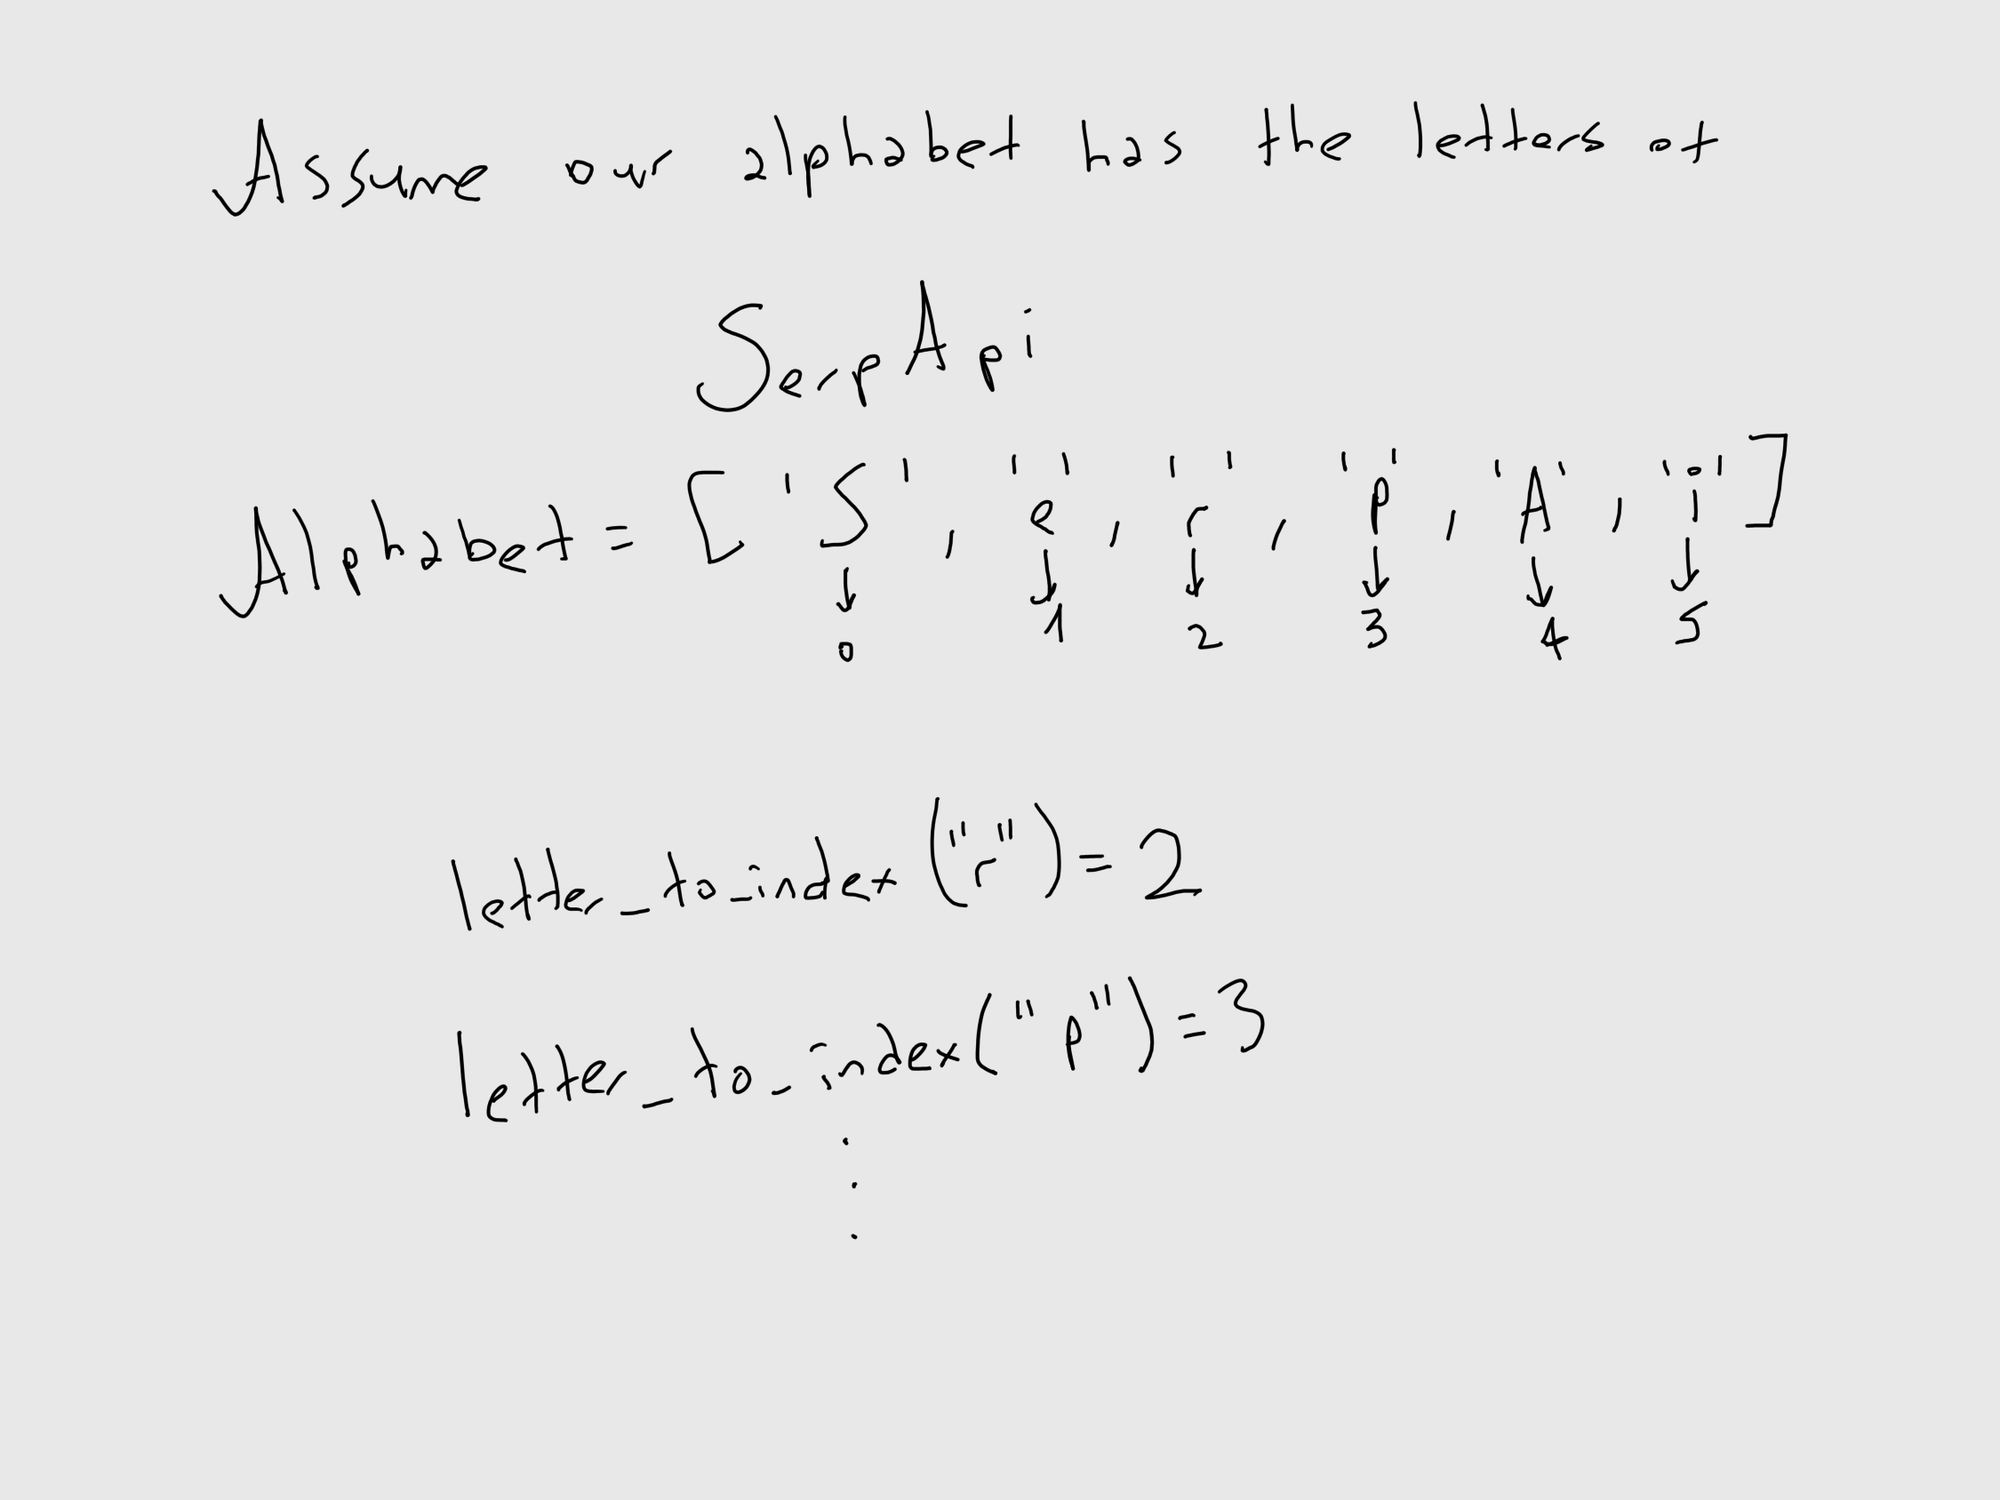 Assume our alphabet has the letters of
SerpApi
Alphabet = ['S', 'e', 'r', 'p', 'A', 'i']
0 1 2 3 4 5
letter_to_index("r") = 2
letter_to_index("p") = 3